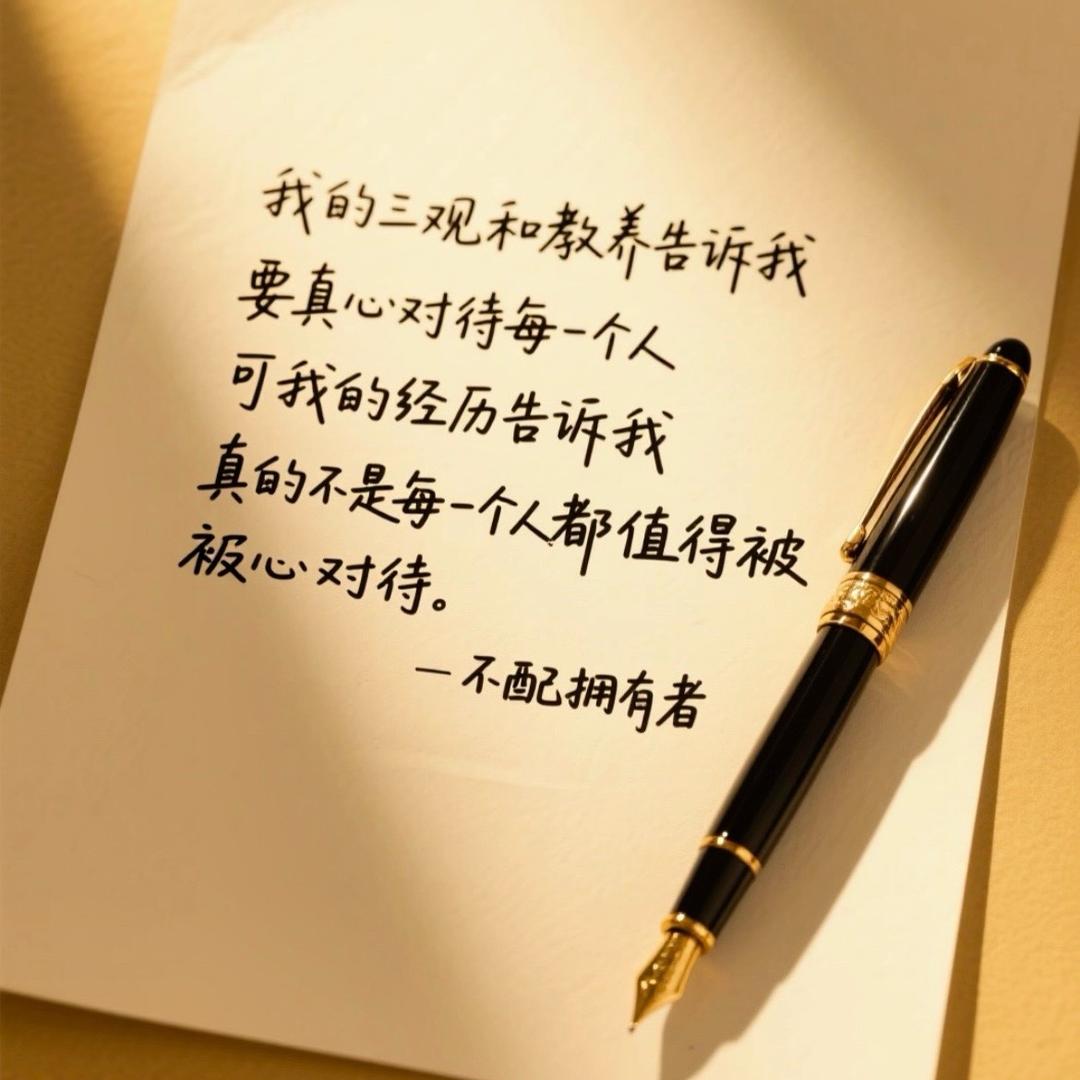 我的三观和教养告诉我
要真心对待每一个人
可我的经历告诉我
真的不是每一个人都值得被
被心对待。
—不配拥有者